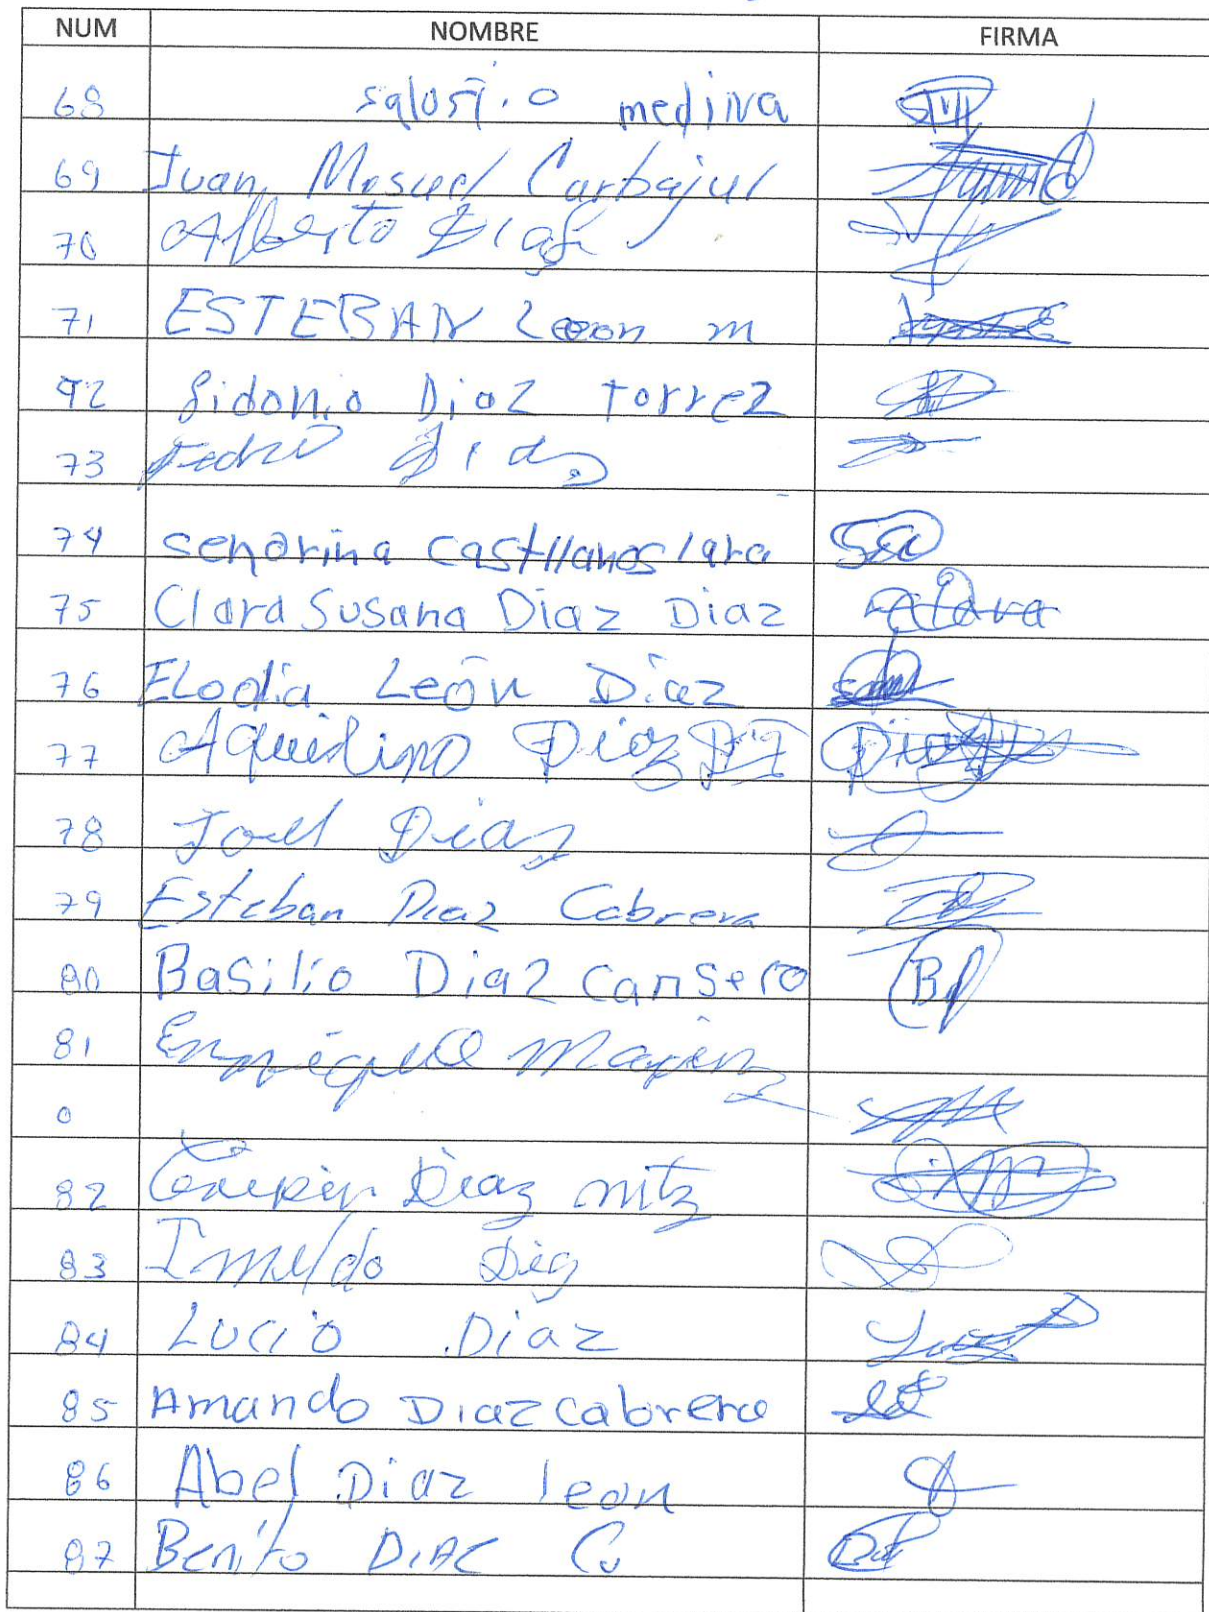 NUM NOMBRE FIRMA
68 medina
69 Juan Carbajal
70 Alberto Diaz
71 ESTEBAN Leon m
72 Sidonio Diaz torrez
73 Pedro Diaz
74 senorina castllanos lara
75 Clara Susana Diaz Diaz Clara
76 ELodia León Díaz
77 Aquilino Diaz Diaz
78 Joel Diaz
79 Esteban Diaz Cabrera
80 Basilio Diaz Cansero BD
81 Enrique
0
82 Diaz mtz
83 Imeldo Diaz
84 Lucio Diaz
85 Amando Diaz cabrera
86 Abel Diaz leon
87 Benito DIAC